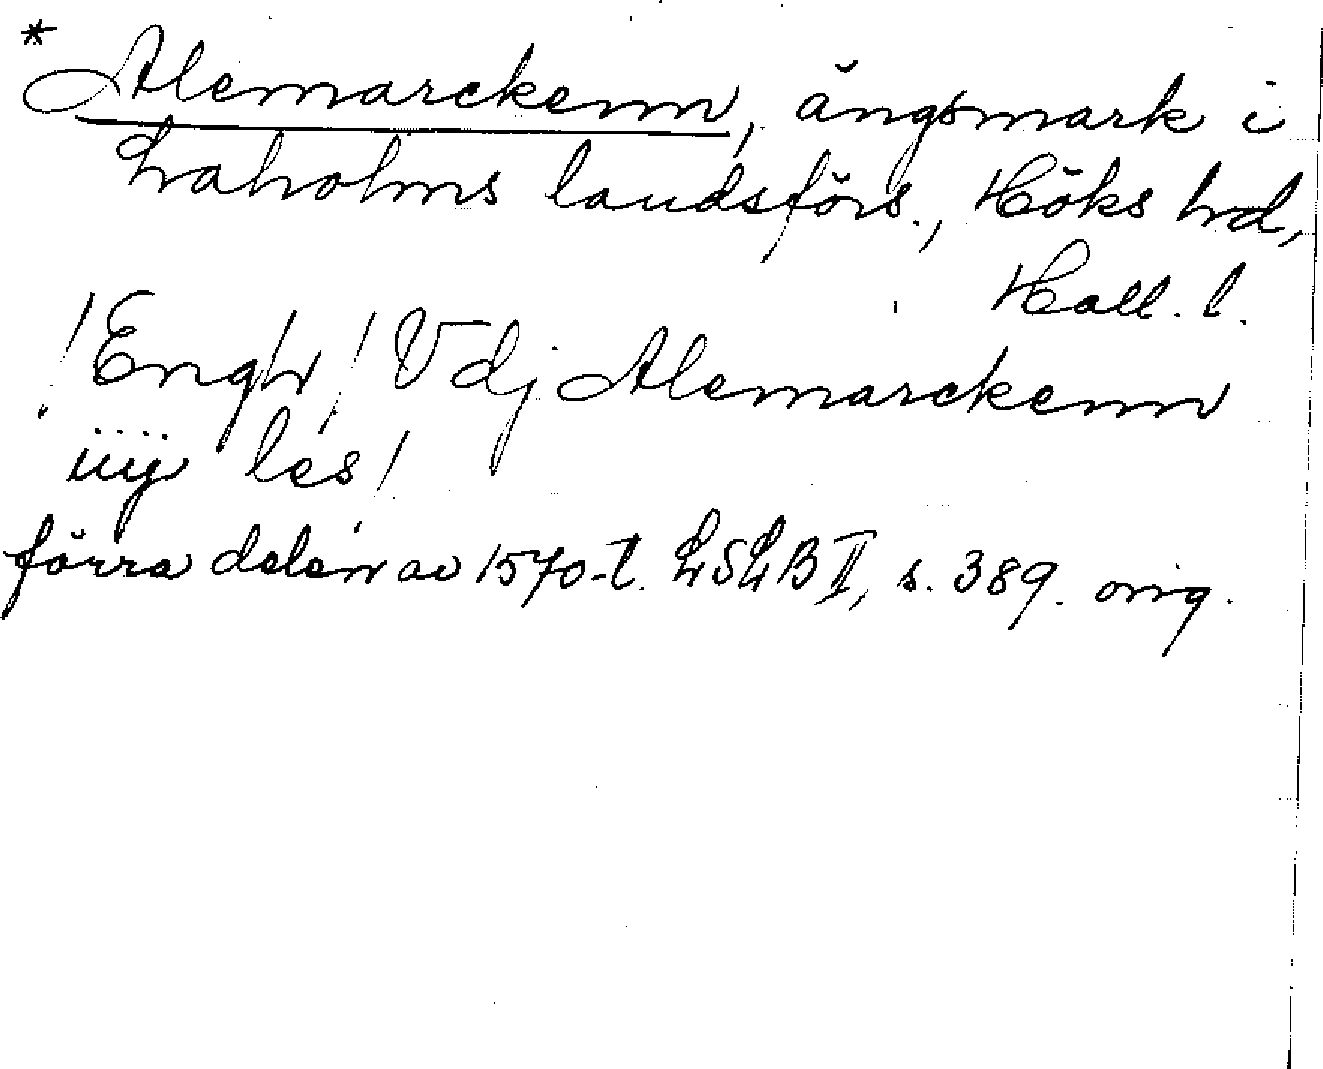 * Alemarckenn, ängsmark i
Laholms landsförs., Höks hd,
Hall. l.
! Engh ! Vdj Alemarckenn
iiij les !
förra delen av 1570-t. LSLB II, s. 389. orig.